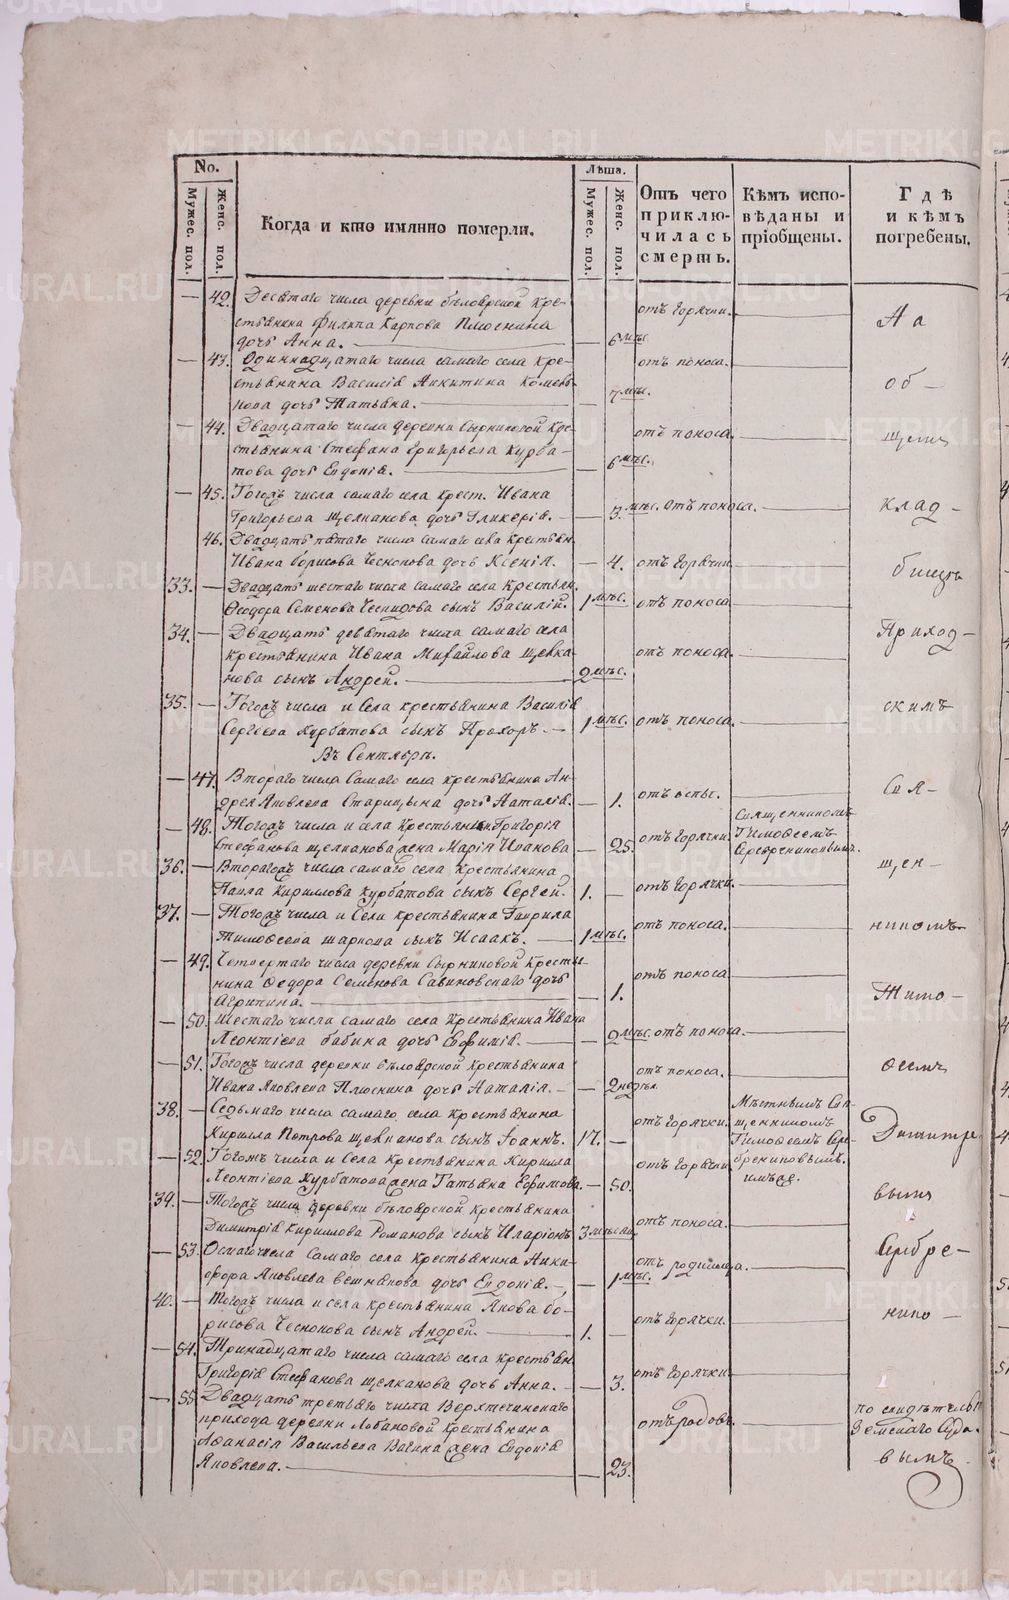 No.
Мужес. пол.
Женс. пол.
Когда и кто имянно померли.
Лѣша.
Мужес. пол.
Женс. пол.
Отъ чего приклю-
чилась смерть.
Кѣмъ испо-
вѣданы и
пріобщены.
Гдѣ
и кѣмъ
погребены.
— 42. Десятаго числа деревни бѣлоярской кре-
стьянина Филипа Карпова Плюснина
дочь Анна. — 6 мѣс. отъ горячки.
— 43. Одиннадцатаго числа самаго села кре-
стьянина Василія Никитина
дочь Татьяна. — 7 мѣс. отъ поноса.
— 44. Двадцатаго числа деревни Сырниковой кре-
стьянина Стефана Григорьева Курба-
това дочь Евдокія. — 6 мѣс. отъ поноса.
— 45. Тогожъ числа самаго села крест. Ивана
Григорьева Щелканова дочь Гликерія. — 3 мѣс. отъ поноса.
46. Двадцать пятаго числа самаго села крестьян.
Ивана борисова Чеснокова дочь Ксенія. — 4. отъ горячки
33. — Двадцать шестаго числа самаго села крестьян.
Ѳеодора Семенова сынъ Василій. 1 мѣс. отъ поноса
34. — Двадцать девятаго числа самаго села
крестьянина Ивана Михайлова Щелка-
нова сынъ Андрей. 2 мѣс. отъ поноса.
35. — Тогожъ числа и Села крестьянина Василія
Сергѣева Курбатова сынъ Прохоръ. — 1 мѣс. отъ поноса.
Въ Сентябрѣ.
— 47. Втораго числа Самаго села крестьянина Ан-
дрея Яковлева Старицына дочь Наталія. — 1. отъ оспы.
— 48. Тогожъ числа и села крестьянина Григорія
Стефанова Щелканова жена Марія Иванова — 25. отъ горячки
Священникомъ
Тимоѳеемъ
Серебрениковымъ.
36. — Вторагожъ числа самаго села крестьянина
Павла Кирилова Курбатова сынъ Сергей. 1. — отъ горячки.
37. — Тогожъ числа и Села крестьянина Гаврила
Тимоѳеева сынъ Исаакъ. — 1 мѣс. отъ поноса.
— 49. Четвертаго числа деревни Сырниковой кресть-
нина Ѳедора Семенова Савиновскаго дочь
Агрипина. — 1. отъ поноса
— 50. шестаго числа самаго села крестьянина Ивана
Леонтіева бабина дочь Евфимія. — 2 мѣс. отъ поноса.
— 51. Тогожъ числа деревни бѣлоярской крестьянина
Ивана Яковлева Плюснина дочь Наталія. — 2 недѣл. отъ поноса.
38. — Седьмаго числа самаго села крестьянина
Кирилла Петрова Щелканова сынъ Іоаннъ. 17. — отъ горячки.
Мѣстнымъ Свя-
щенникомъ
Тимоѳеемъ Сере-
брениковымъ.
— 52. Тогожъ числа и Села крестьянина Кирилла
Леонтіева Курбатова жена Татьяна Ефимова. — 50. отъ горячки
имъ же.
39. — Тогожъ числа деревни бѣлоярской крестьянина
Димитрія Кириллова Романова сынъ Иларіонъ 3 мѣсяц. отъ поноса.
— 53. Осмаго числа Самаго села крестьянина Ники-
фора Яковлева дочь Евдокія. — 1 мѣс. отъ родимца.
40. — Тогожъ числа и села крестьянина Якова бо-
рисова Чеснокова сынъ Андрей. — 1. — отъ горячки.
— 54. Тринадцатаго числа самаго села крестьян.
Григорія Стефанова Щелканова дочь Анна. — 3. отъ горячки.
— 55. Двадцать третьяго числа Верхтеченскаго
прихода деревни Лобановой крестьянина
Аѳанасія Васильева Вагина жена Евдокія
Яковлева. — 23. отъ родовъ.
На
об-
щемъ
клад-
бищѣ
Приход-
скимъ
Свя-
щен-
никомъ
Тимо-
ѳеемъ
Димитре-
вымъ
Серебре-
нико-
по свидѣтельст
Земскаго Суда.
вымъ.